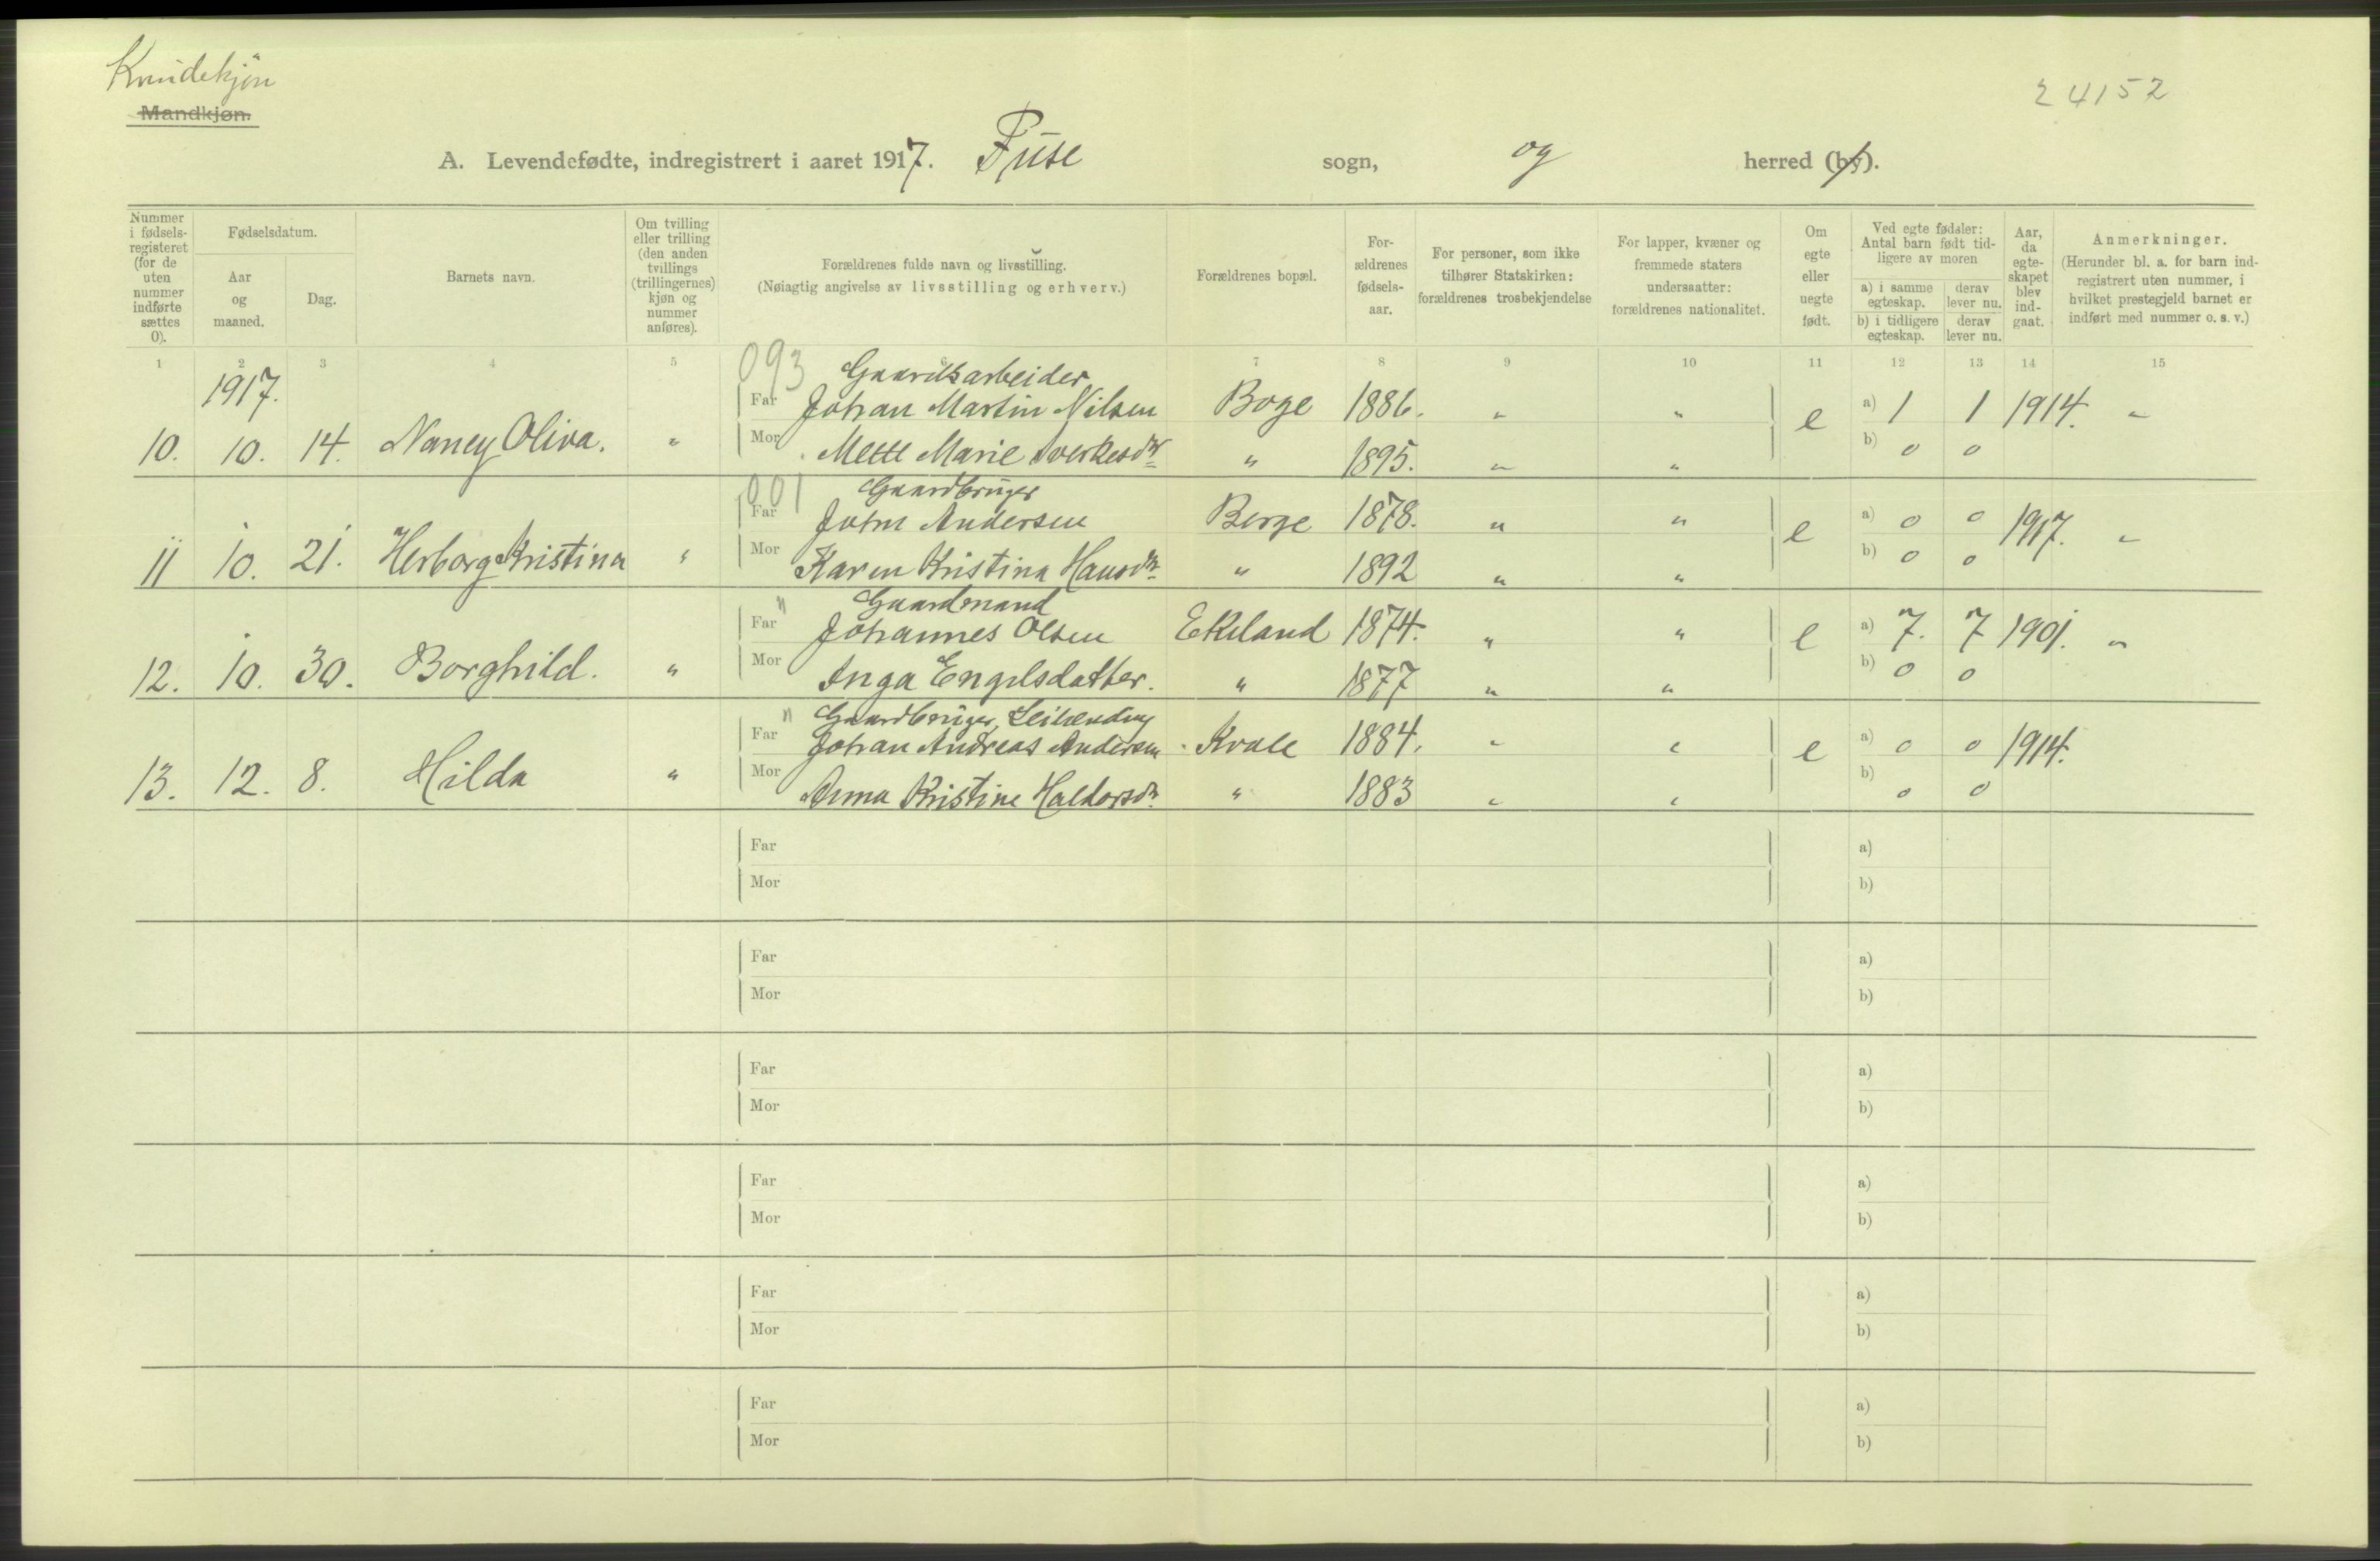 Kvindekjøn
Mandkjøn.
24152
A. Levendefødte, indregistrert i aaret 1917. Fuse sogn, og herred (by).
Nummer i fødselsregisteret (for de uten nummer indførte sættes 0).
Fødselsdatum.
Aar og maaned.
Dag.
Barnets navn.
Om tvilling eller trilling (den anden tvillings (trillingernes) kjøn og nummer anføres).
Forældrenes fulde navn og livsstilling.
(Nøiagtig angivelse av livsstilling og erhverv.)
Forældrenes bopæl.
Forældrenes fødselsaar.
For personer, som ikke tilhører Statskirken: forældrenes trosbekjendelse
For lapper, kvæner og fremmede staters undersaatter: forældrenes nationalitet.
Om egte eller uegte født.
Ved egte fødsler: Antal barn født tidligere av moren
a) i samme egteskap. derav lever nu.
b) i tidligere egteskap. derav lever nu.
Aar, da egteskapet blev indgaat.
Anmerkninger.
(Herunder bl. a. for barn indregistrert uten nummer, i hvilket prestegjeld barnet er indført med nummer o. s. v.)
1 2 3 4 5 6 7 8 9 10 11 12 13 14 15
1917.
093 Gaardsarbeider
Far Johan Martin Nilsen Boge 1886. " " e a) 1 1 1914. "
10. 10. 14. Nancy Oliva. " Mor Mette Marie Sverkesdtr " 1895. " " b) 0 0
001 Gaardbruger
Far John Andersen Berge 1878. " " e a) 0 0 1917. "
11 10. 21. Herborg Kristina " Mor Karen Kristina Hansdtr " 1892 " " b) 0 0
" Gaardmand
Far Johannes Olsen Ekeland 1874. " " e a) 7. 7 1901. "
12. 10. 30. Borghild. " Mor Inga Engelsdatter. " 1877 " " b) 0 0
" Gaardbruger, Leilending
Far Johan Andreas Andersen Kvale 1884. " " e a) 0 0 1914.
13. 12. 8. Hilda " Mor Anna Kristine Haldorsdtr " 1883 " " b) 0 0
Far a)
Mor b)
Far a)
Mor b)
Far a)
Mor b)
Far a)
Mor b)
Far a)
Mor b)
Far a)
Mor b)